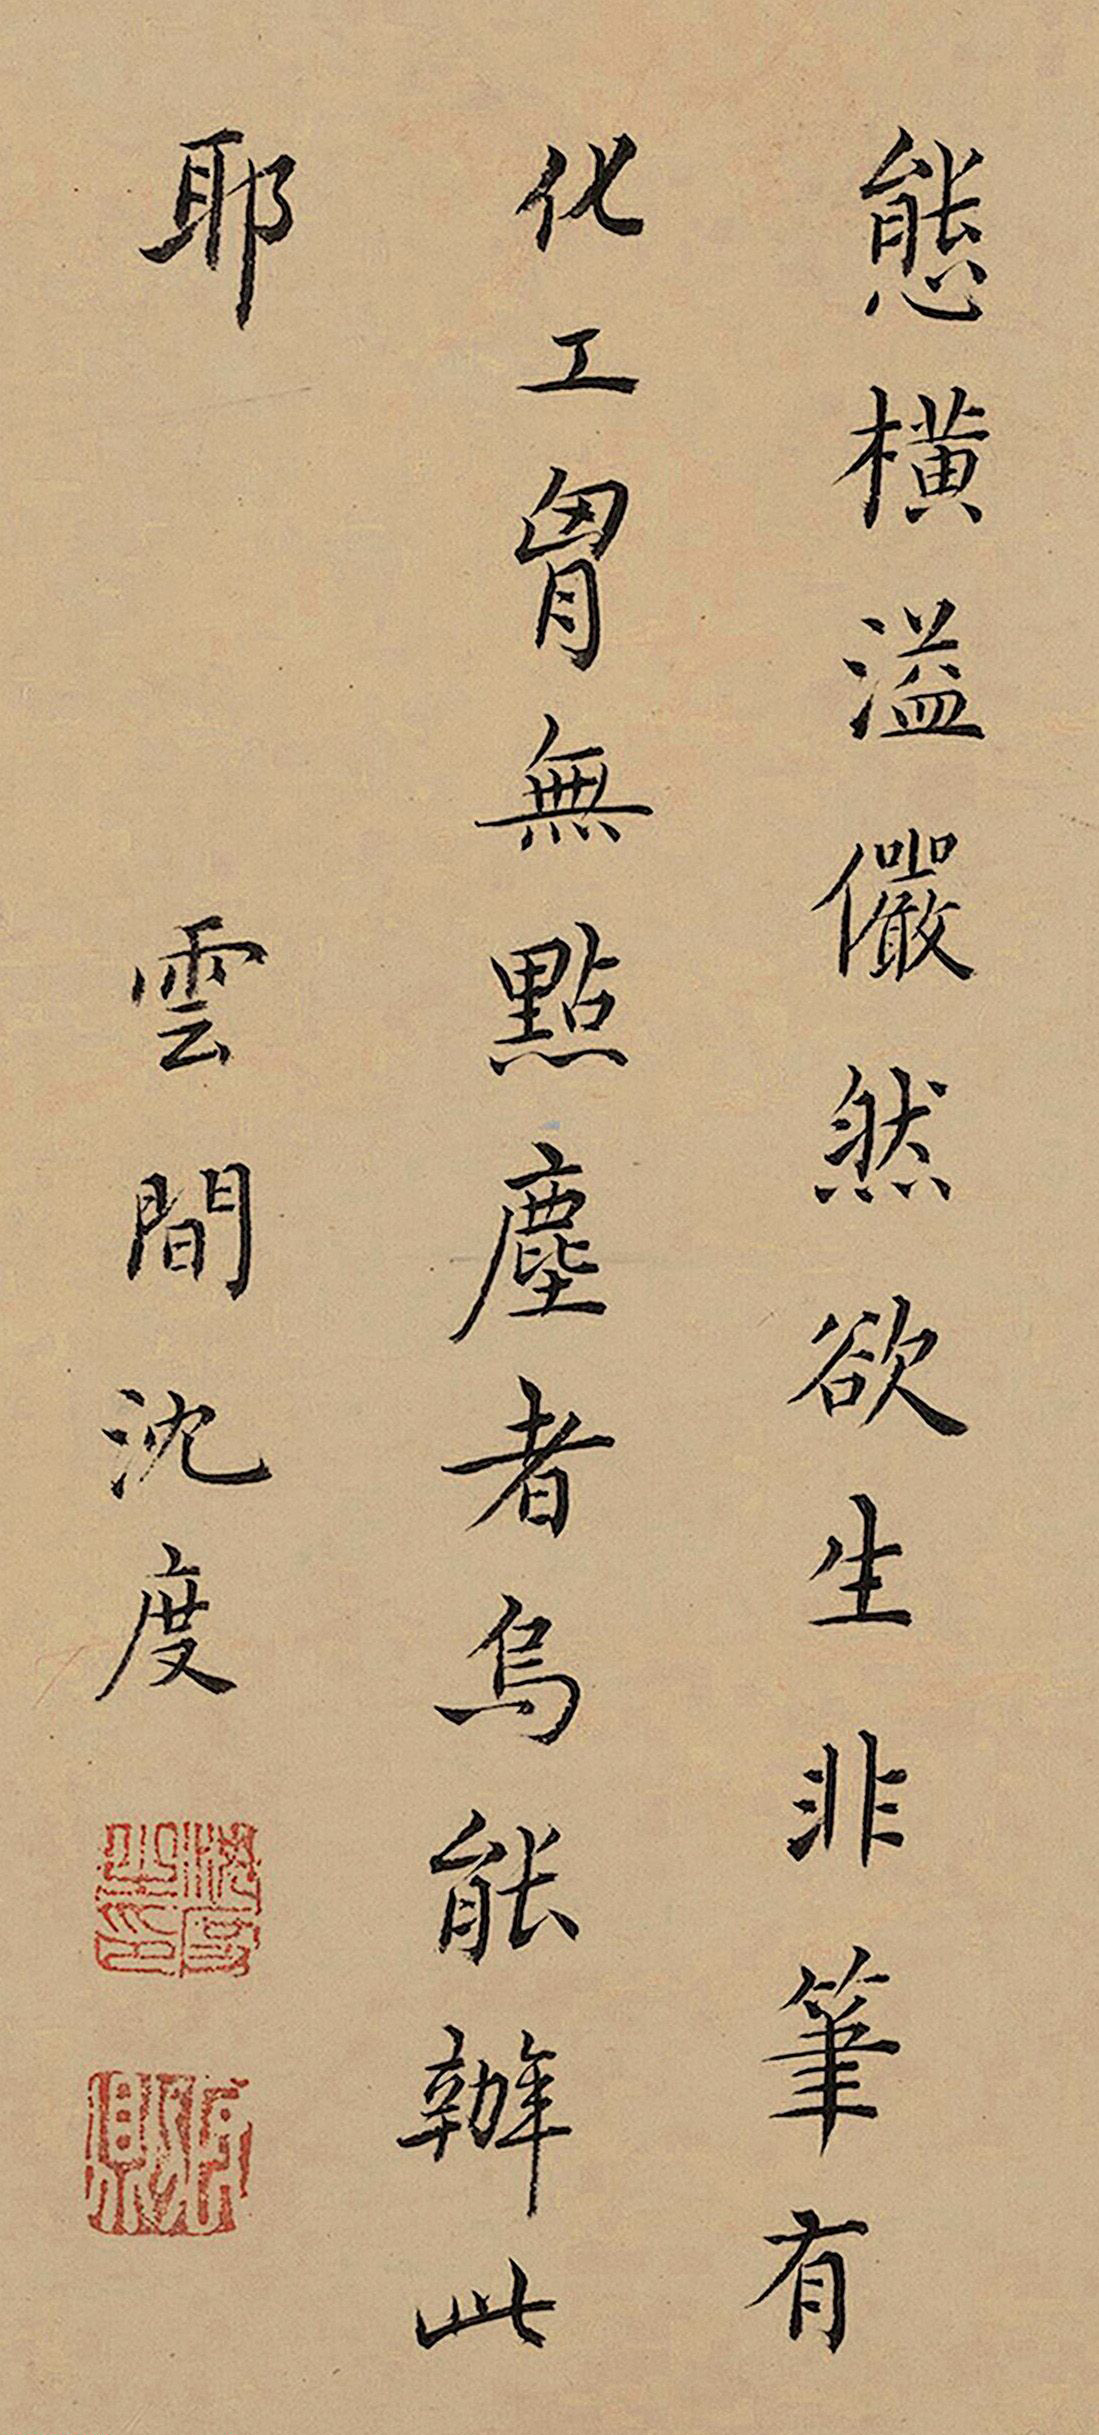 態橫溢儼然欲生非筆有
化工胷無點塵者烏能辦此
耶　雲間沈度